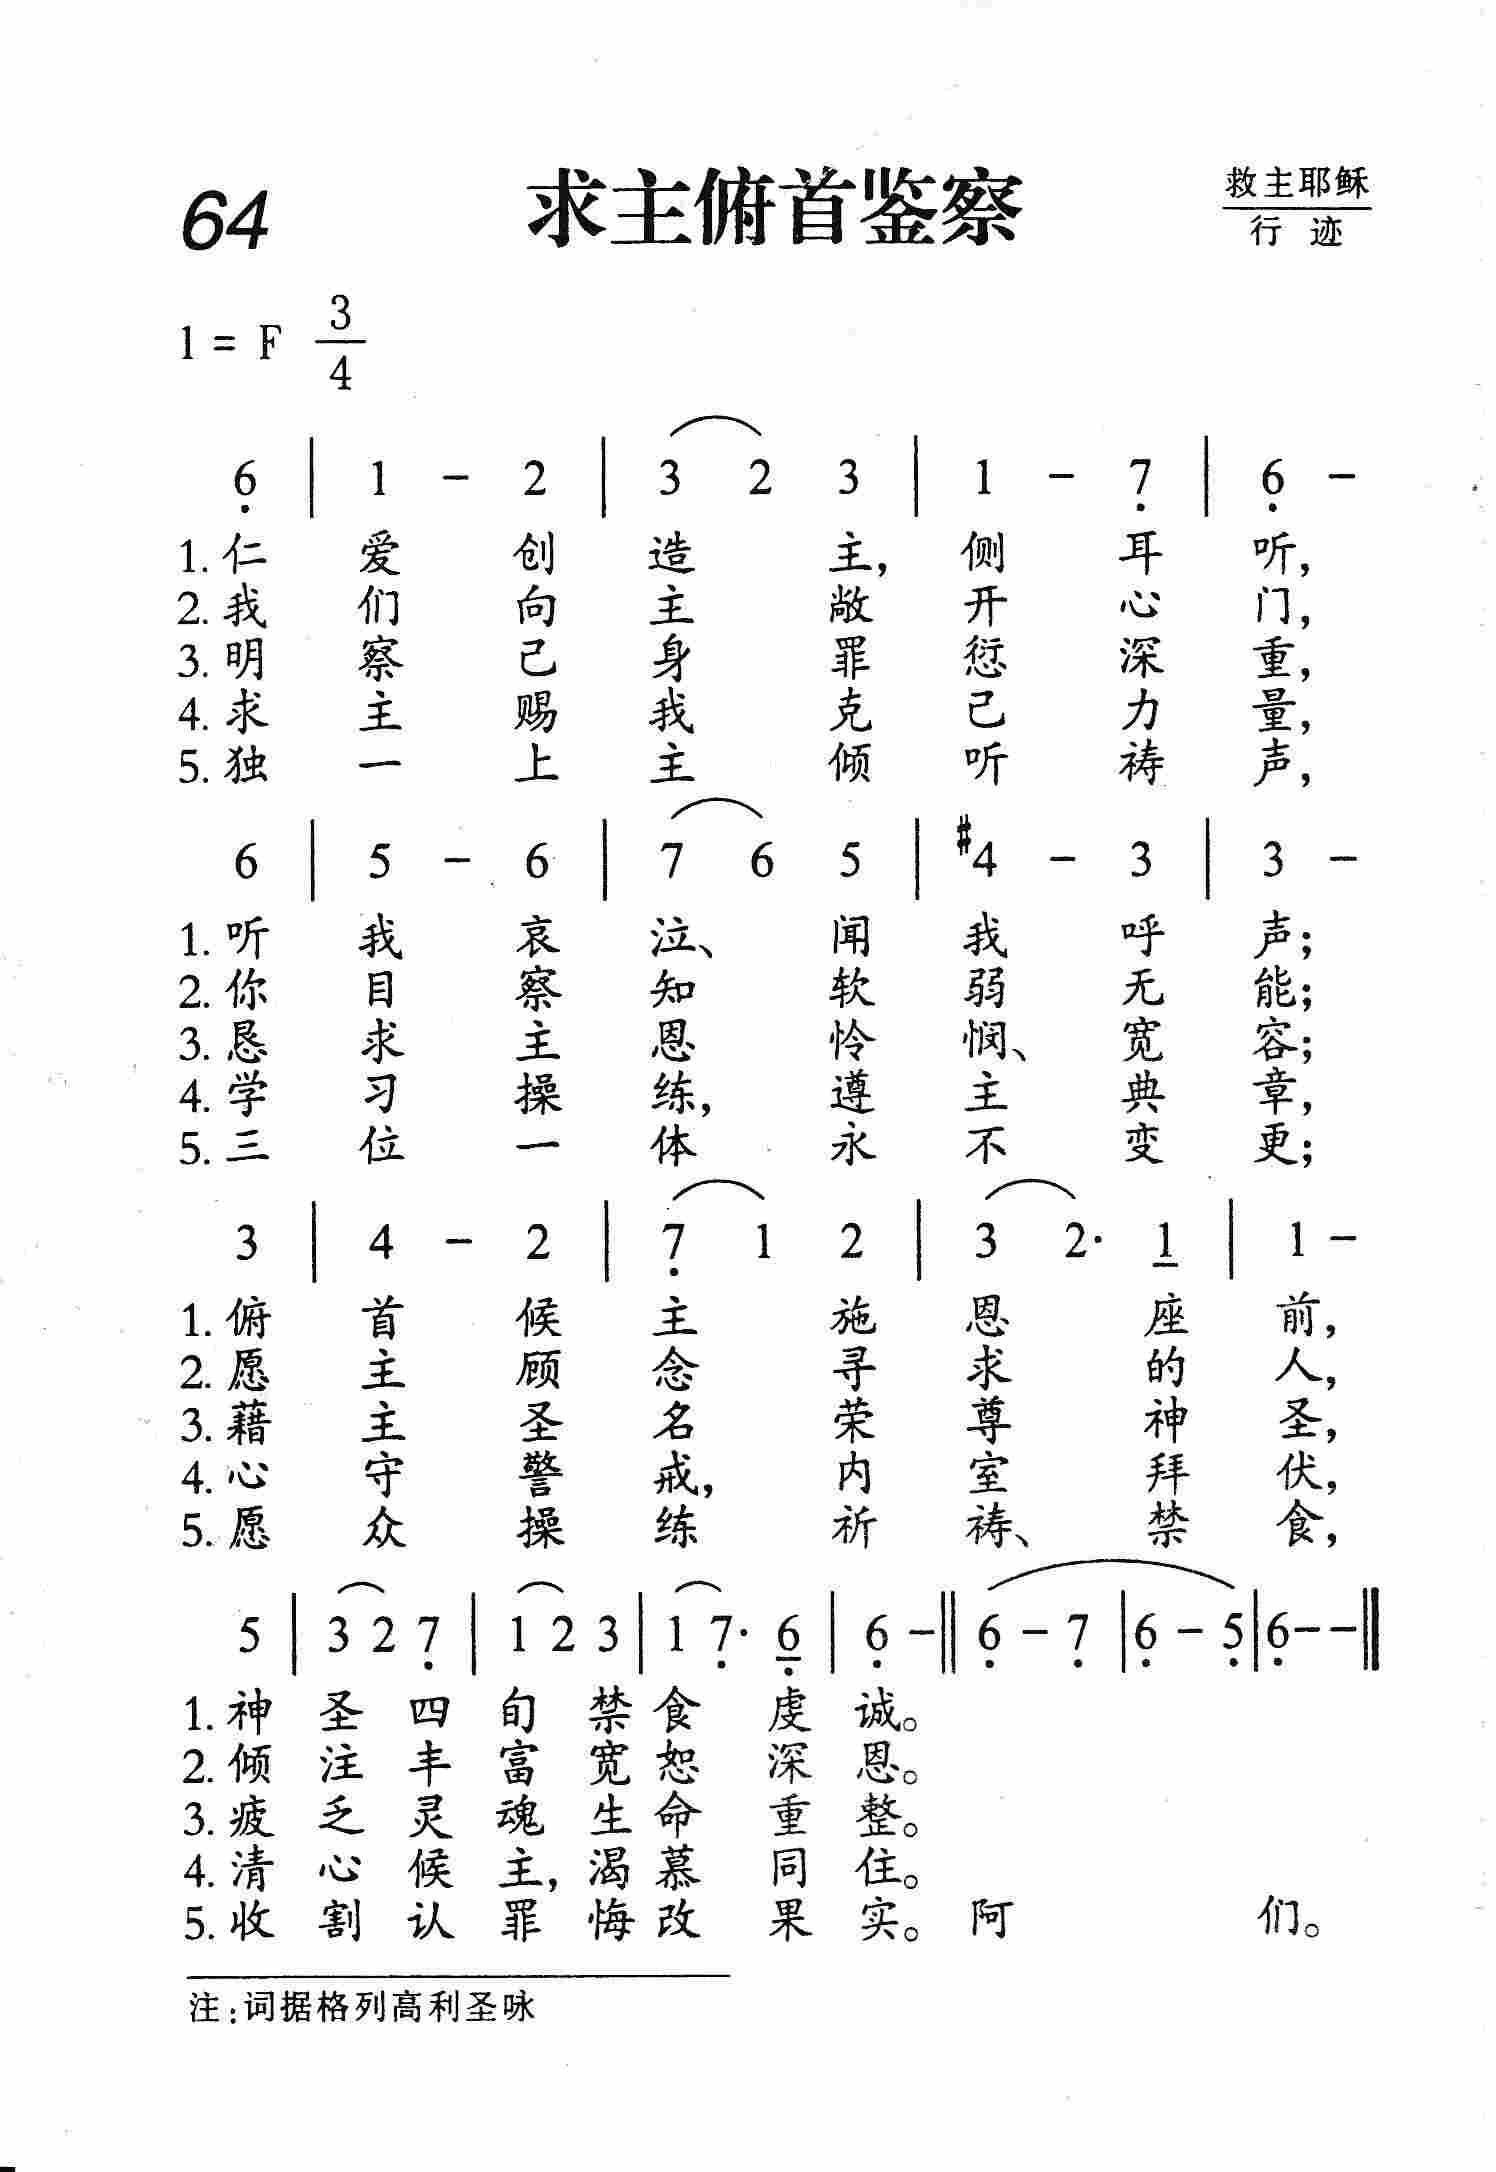 64
求主俯首鉴察
救主耶稣
行迹
1 = F 3/4
6̣ | 1 - 2 | 3 2 3 | 1 - 7̣ | 6̣ -
1. 仁爱创造主，侧耳听，
2. 我们向主敞开心门，
3. 明察己身罪愆深重，
4. 求主赐我克己力量，
5. 独一上主倾听祷声，
6 | 5 - 6 | 7 6 5 | #4 - 3 | 3 -
1. 听我哀泣、闻我呼声；
2. 你目察知软弱无能；
3. 恳求主恩怜悯、宽容；
4. 学习操练，遵主典章，
5. 三位一体永不变更；
3 | 4 - 2 | 7̣ 1 2 | 3 2· 1 | 1 -
1. 俯首候主施恩座前，
2. 愿主顾念寻求的人，
3. 藉主圣名荣尊神圣，
4. 心守警戒，内室拜伏，
5. 愿众操练祈祷、禁食，
5 | 3 2 7̣ | 1 2 3 | 1 7̣· 6̣ | 6̣ - ‖ 6̣ - 7̣ | 6̣ - 5̣ | 6̣ - - ‖
1. 神圣四旬禁食虔诚。
2. 倾注丰富宽恕深恩。
3. 疲乏灵魂生命重整。
4. 清心候主，渴慕同住。
5. 收割认罪悔改果实。阿们。
注：词据格列高利圣咏